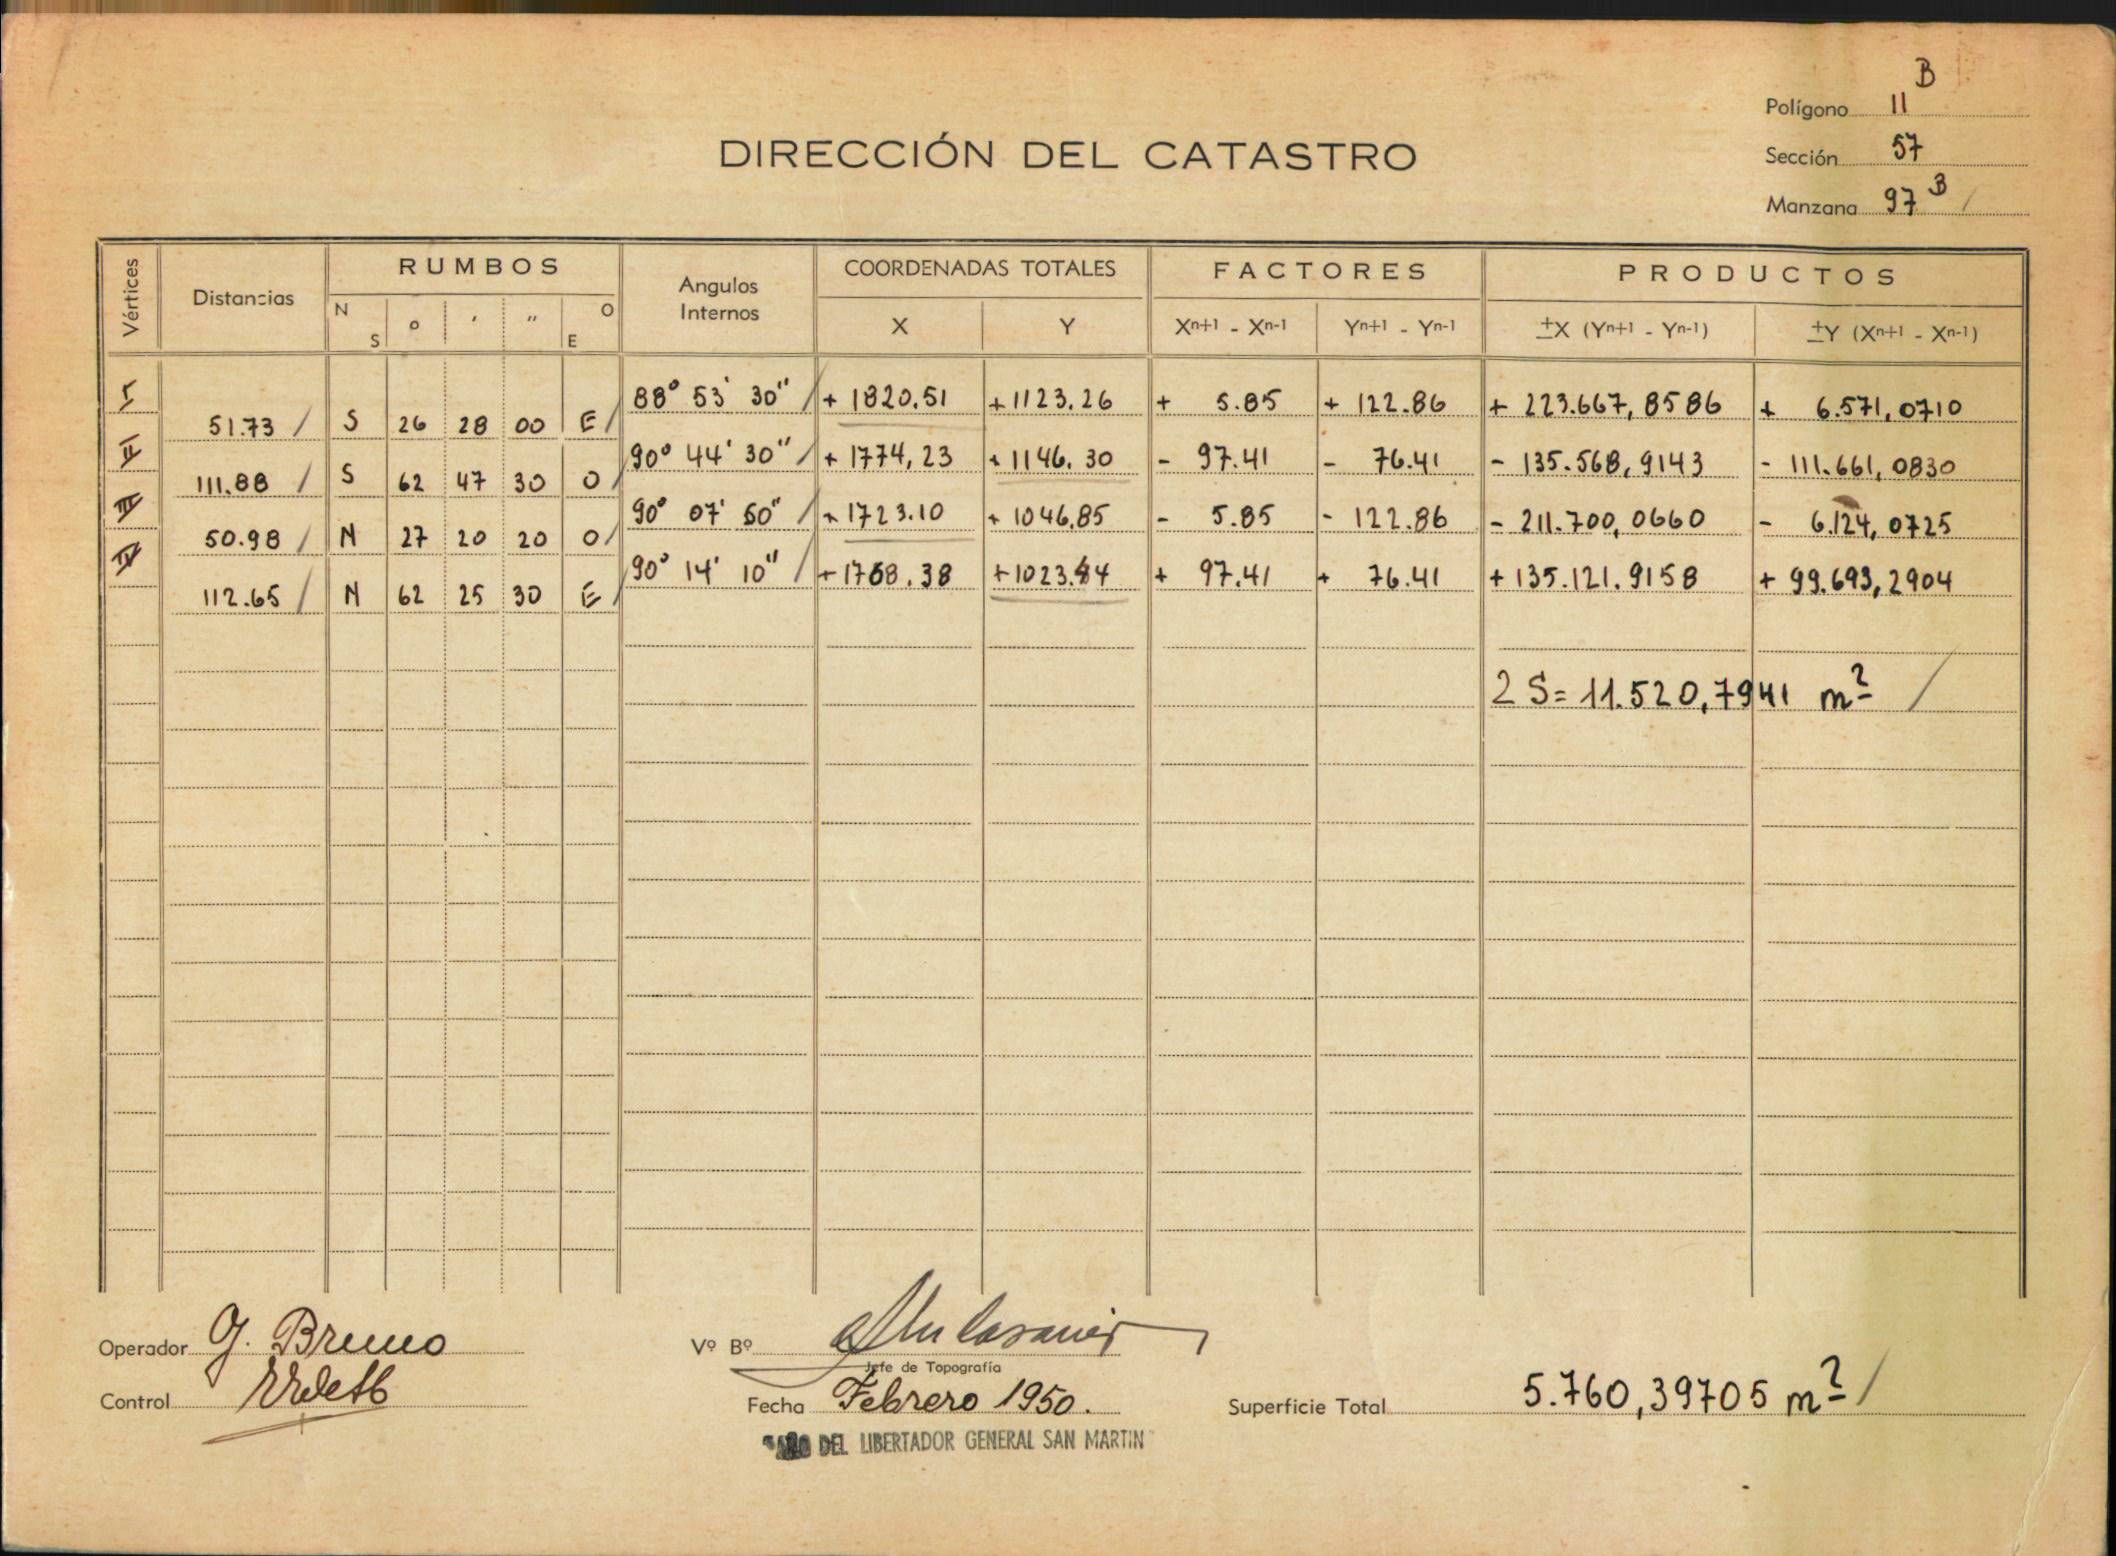 B
Polígono 11
DIRECCIÓN DEL CATASTRO
Sección 57
Manzana 97 B /
Vértices Distancias RUMBOS Angulos Internos COORDENADAS TOTALES FACTORES PRODUCTOS
N S ° ' '' O E X Y Xn+1 - Xn-1 Yn+1 - Yn-1 ±X (Yn+1 - Yn-1) ±Y (Xn+1 - Xn-1)
I 88° 53' 30" / + 1820.51 + 1123.26 + 5.85 + 122.86 + 223.667,8586 + 6.571,0710
51.73 / S 26 28 00 E /
II 90° 44' 30" / + 1774,23 + 1146.30 - 97.41 - 76.41 - 135.568,9143 - 111.661,0830
111.88 / S 62 47 30 O /
III 90° 07' 50" / + 1723.10 + 1046.85 - 5.85 - 122.86 - 211.700,0660 - 6.124,0725
50.98 / N 27 20 20 O /
IV 90° 14' 10" / + 1768.38 + 1023.44 + 97.41 + 76.41 + 135.121.9158 + 99.693,2904
112.65 / N 62 25 30 E /
2 S = 11.520,7941 m² /
Operador G. Bruno
Vº Bº
Jefe de Topografía
Control
Fecha Febrero 1950.
Superficie Total 5.760,39705 m² /
DEL LIBERTADOR GENERAL SAN MARTIN